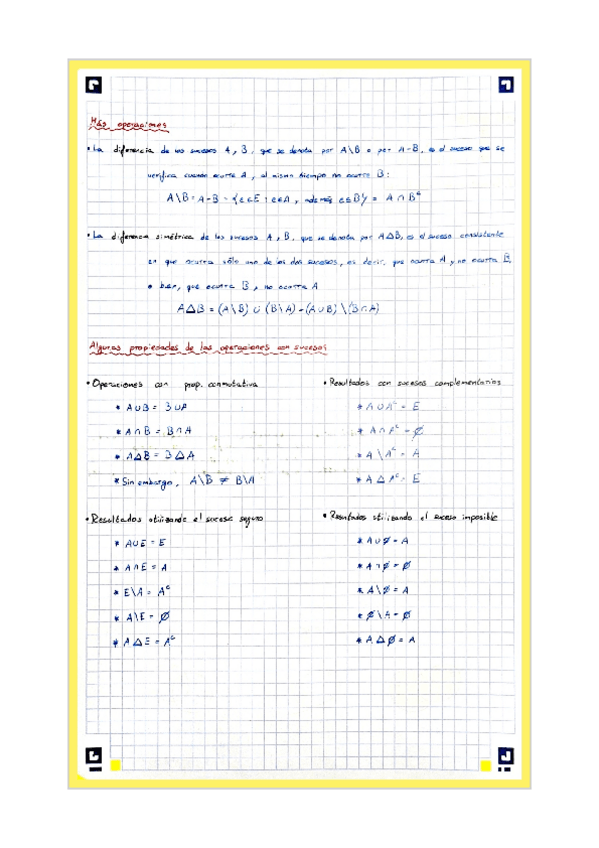 Más operaciones
• La diferencia de los sucesos A, B, que se denota por A\B o por A-B, es el suceso que se
verifica cuando ocurre A, al mismo tiempo no ocurre B:
A\B = A-B = {e∈E : e∈A, además e∉B} = A ∩ Bᶜ
• La diferencia simétrica de los sucesos A, B, que se denota por A△B, es el suceso consistente
en que ocurra sólo uno de los dos sucesos, es decir, que ocurra A y no ocurra B,
o bien, que ocurra B y no ocurra A
A△B = (A\B) ∪ (B\A) = (A∪B) \ (B∩A)
Algunas propiedades de las operaciones con sucesos
• Operaciones con prop. conmutativa
* A∪B = B∪A
* A∩B = B∩A
* A△B = B△A
* Sin embargo, A\B ≠ B\A
• Resultados con sucesos complementarios
* A∪Aᶜ = E
* A∩Aᶜ = ∅
* A\Aᶜ = A
* A△Aᶜ = E
• Resultados utilizando el suceso seguro
* A∪E = E
* A∩E = A
* E\A = Aᶜ
* A\E = ∅
* A△E = Aᶜ
• Resultados utilizando el suceso imposible
* A∪∅ = A
* A∩∅ = ∅
* A\∅ = A
* ∅\A = ∅
* A△∅ = A